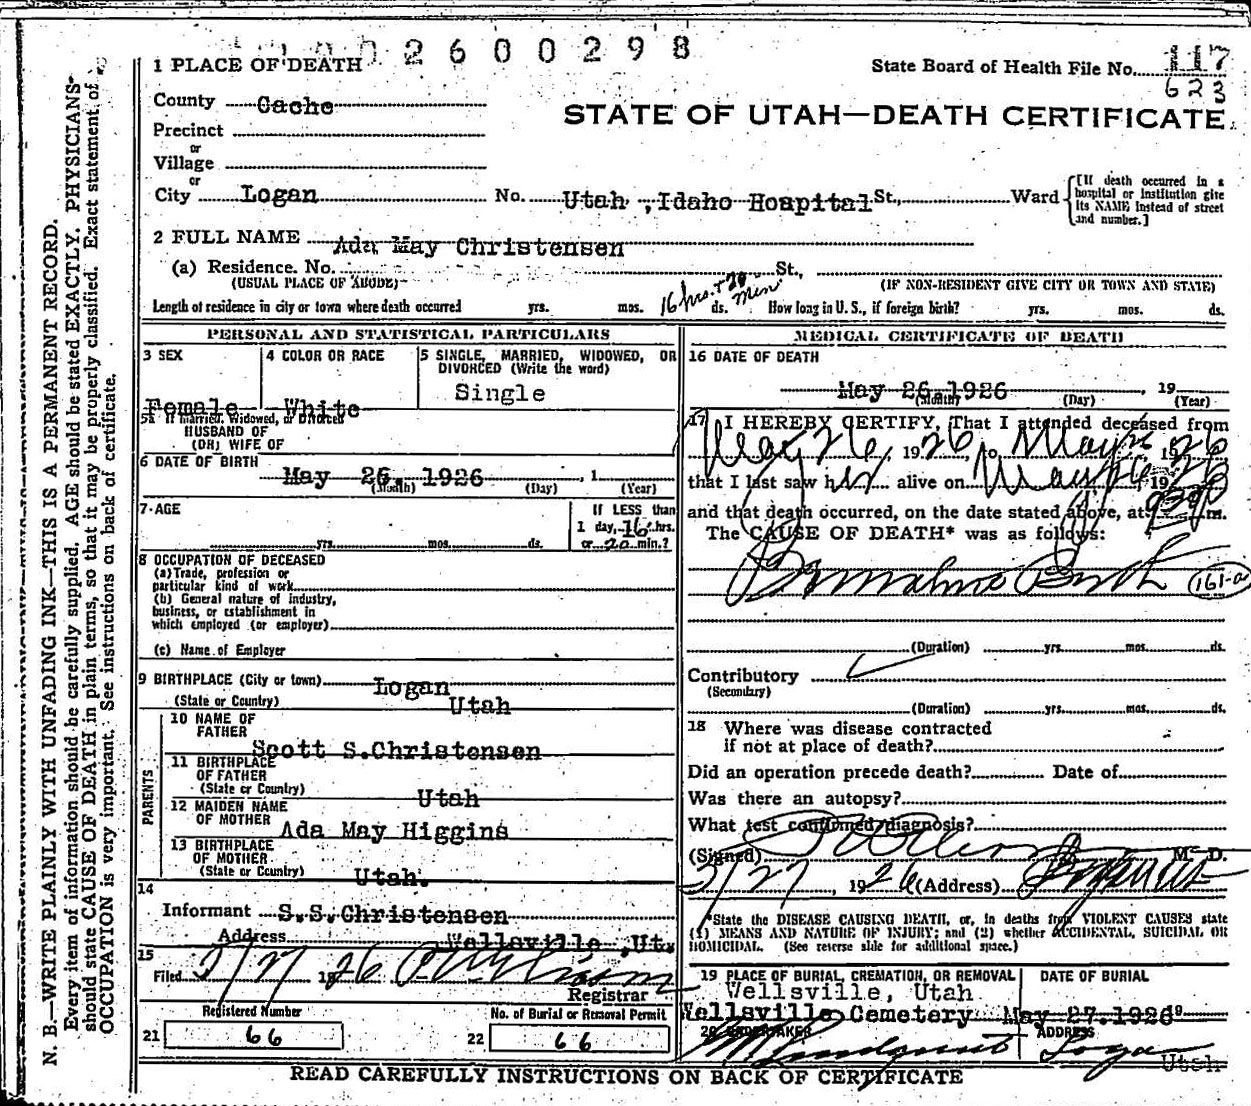 2600298
1 PLACE OF DEATH
State Board of Health File No. 117
623
County Cache
STATE OF UTAH—DEATH CERTIFICATE
Precinct
or
Village
or
City Logan No. Utah ,Idaho Hospital St., Ward
[If death occurred in a hospital or institution give its NAME instead of street and number.]
2 FULL NAME Ada May Christensen
(a) Residence. No. St.,
(USUAL PLACE OF ABODE)
(IF NON-RESIDENT GIVE CITY OR TOWN AND STATE)
Length of residence in city or town where death occurred yrs. mos. 16 hrs. + 20 min ds. How long in U. S., if foreign birth? yrs. mos. ds.
PERSONAL AND STATISTICAL PARTICULARS
3 SEX
Female
4 COLOR OR RACE
White
5 SINGLE, MARRIED, WIDOWED, OR
DIVORCED (Write the word)
Single
5a If married, Widowed, or Divorced
HUSBAND OF
(OR) WIFE OF
6 DATE OF BIRTH May 26, 1926 , 1
(Month) (Day) (Year)
7 AGE
yrs. mos. ds.
If LESS than
1 day, 16 hrs.
or 20 min.?
8 OCCUPATION OF DECEASED
(a) Trade, profession or
particular kind of work
(b) General nature of industry,
business, or establishment in
which employed (or employer)
(c) Name of Employer
9 BIRTHPLACE (City or town) Logan
(State or Country) Utah
PARENTS
10 NAME OF
FATHER
Scott S.Christensen
11 BIRTHPLACE
OF FATHER
(State or Country) Utah
12 MAIDEN NAME
OF MOTHER
Ada May Higgins
13 BIRTHPLACE
OF MOTHER
(State or Country) Utah.
14
Informant S.S.Christensen
Address Wellsville ,Ut.
15
Filed 5/27 1926
Registrar
Registered Number
21 66
No. of Burial or Removal Permit
22 66
MEDICAL CERTIFICATE OF DEATH
16 DATE OF DEATH
May 26,1926 , 19
(Month) (Day) (Year)
17 I HEREBY CERTIFY, That I attended deceased from
May 26, 1926 to May 26 1926
that I last saw her alive on May 26, 1926
and that death occurred, on the date stated above, at m.
The CAUSE OF DEATH* was as follows:
Premature Birth 161-a
(Duration) yrs. mos. ds.
Contributory
(Secondary)
(Duration) yrs. mos. ds.
18 Where was disease contracted
if not at place of death?
Did an operation precede death? Date of
Was there an autopsy?
What test confirmed diagnosis?
(Signed) M. D.
5/27, 1926 (Address) Logan Ut
*State the DISEASE CAUSING DEATH, or, in deaths from VIOLENT CAUSES state
(1) MEANS AND NATURE OF INJURY; and (2) whether ACCIDENTAL, SUICIDAL OR
HOMICIDAL. (See reverse side for additional space.)
19 PLACE OF BURIAL, CREMATION, OR REMOVAL
Wellsville, Utah
Wellsville Cemetery
DATE OF BURIAL
May 27,1926
20 UNDERTAKER
ADDRESS
Logan
Utah
READ CAREFULLY INSTRUCTIONS ON BACK OF CERTIFICATE
N. B.—WRITE PLAINLY WITH UNFADING INK—THIS IS A PERMANENT RECORD.
Every item of information should be carefully supplied. AGE should be stated EXACTLY. PHYSICIANS
should state CAUSE OF DEATH in plain terms, so that it may be properly classified. Exact statement of
OCCUPATION is very important. See instructions on back of certificate.